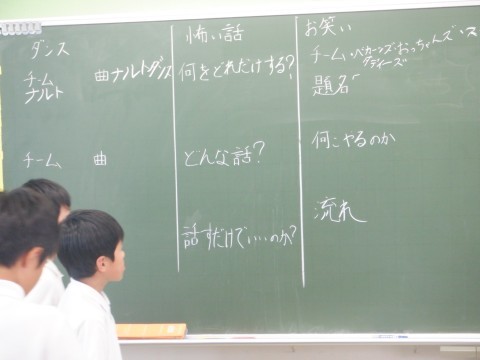 ダンス
チーム
ナルト
曲ナルトダンス
チーム 曲
怖い話
何をどれだけする?
どんな話?
話すだけでいいのか?
お笑い
チーム・ベカーンズ・おっちゃんズ・ス
ダディーズ
題名
何にやるのか
流れ